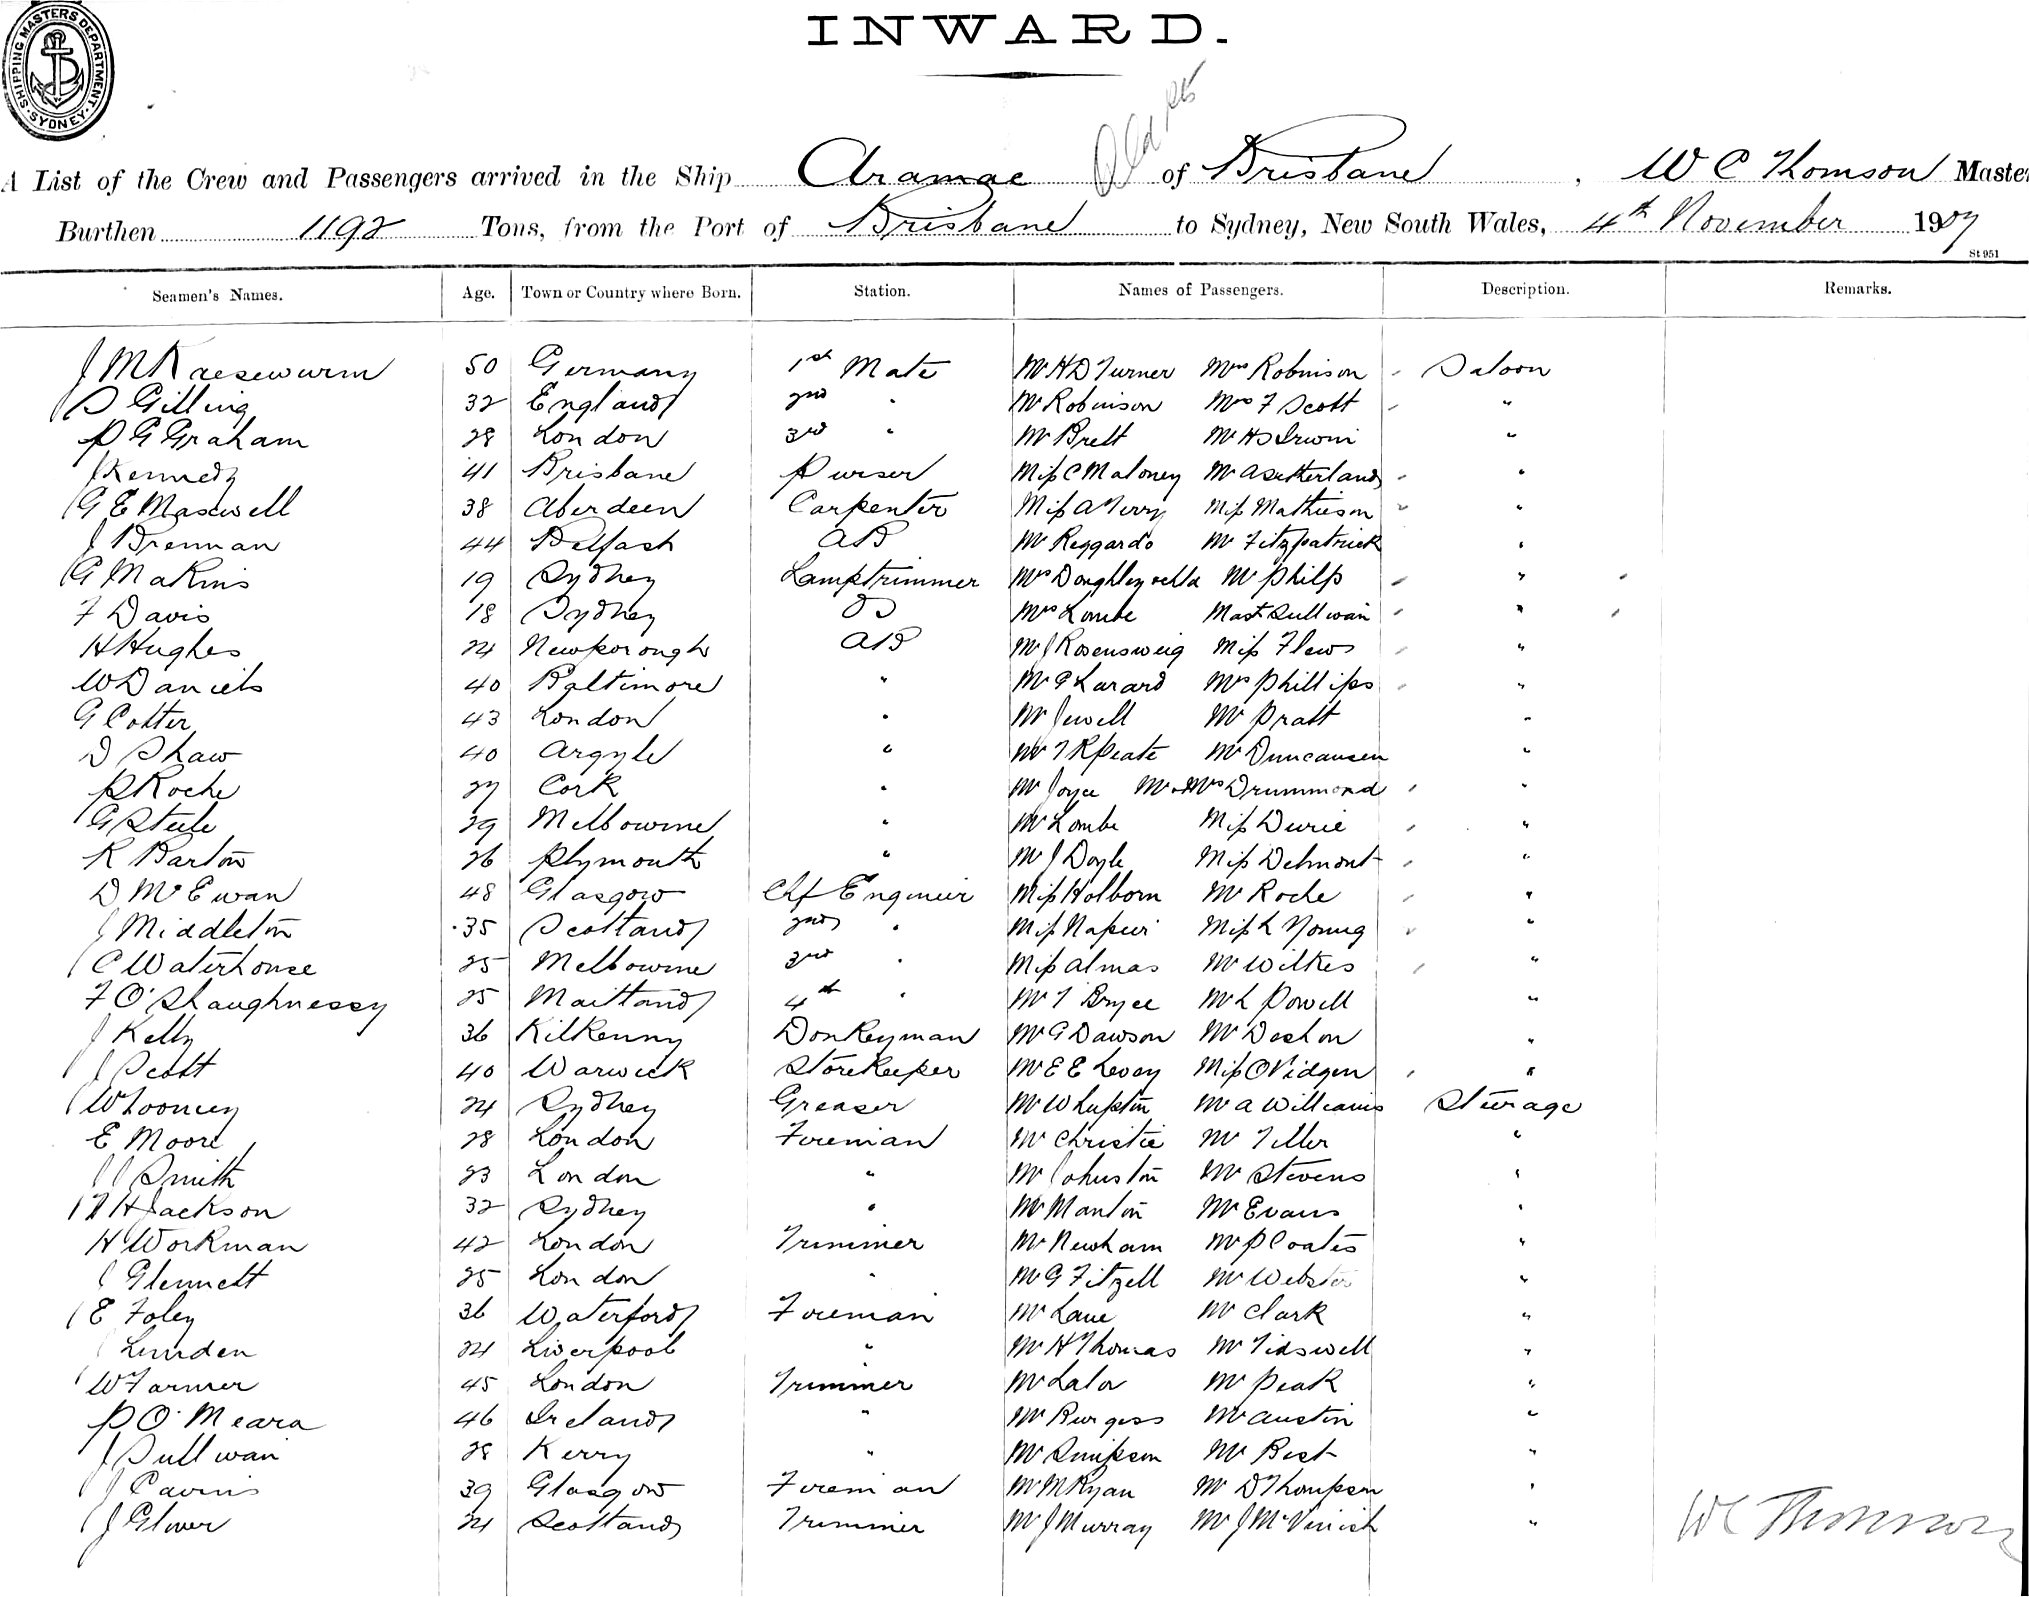 SHIPPING MASTERS DEPARTMENT SYDNEY
INWARD.
A List of the Crew and Passengers arrived in the Ship Aramac of Brisbane, W C Thomson Master
Burthen 1192 Tons, from the Port of Brisbane to Sydney, New South Wales, 4th November 1907
St 951
Seamen's Names. Age. Town or Country where Born. Station. Names of Passengers. Description. Remarks.
50 Germany 1st Mate Mr H D Turner Mrs Robinson Saloon
S Gilling 32 England 2nd " Mr Robinson Mrs F Scott "
P G Graham 28 London 3rd " Mr Brett Mr H S Irwin "
J Kennedy 41 Brisbane Purser Miss C Maloney Mr A Sutherland "
G E Maxwell 38 Aberdeen Carpenter Miss A Terry Miss Mathieson "
J Brennan 44 Belfast AB Mr Reggardo Mr Fitzpatrick "
G Makins 19 Sydney Lamptrimmer Mrs Mr Philp "
F Davis 18 Sydney OS Mrs Lombe Mast Sullivan "
H Hughes 24 Newborough AB Mr J Rosensweig Miss Flews "
W Daniels 40 Baltimore " Mr G Larard Mrs Phillips "
G Cotter 43 London " Mr Jewell Mr Pratt "
D Shaw 40 Argyle " Mr T R Peate Mr Duncansen "
P Roche 27 Cork " Mr Joyce Mr & Mrs Drummond "
G Steele 29 Melbourne " Mr Lombe Miss Durie "
R Barton 26 Plymouth " Mr J Doyle Miss Delmont "
D McEwan 48 Glasgow Chf Engineer Miss Holborn Mr Roche "
J Middleton 35 Scotland 2nd " Miss Napier Miss L Young "
C Waterhouse 25 Melbourne 3rd " Miss Almas Mr Wilkes "
F O'Shaughnessy 25 Maitland 4th " Mr T Bryce Mr L Powell "
J Kelly 36 Kilkenny Donkeyman Mr G Dawson Mr Deshon "
J Scott 40 Warwick Storekeeper Mr E E Levoy Miss O Vidgen "
W Looney 24 Sydney Greaser Mr W Lupton Mr A Williams Steerage
E Moore 28 London Fireman Mr Christie Mr Teller "
J Smith 23 London " Mr Johnston Mr Stevens "
H Jackson 32 Sydney " Mr Manton Mr Evans "
H Workman 42 London Trimmer Mr Newham Mr P Coates "
J Glennett 25 London " Mr G Fitzell Mr Webster "
E Foley 36 Waterford Fireman Mr Lane Mr Clark "
Lunden 24 Liverpool " Mr H Thomas Mr Tidswell "
W Farmer 45 London Trimmer Mr Lalor Mr Peak "
P O'Meara 46 Ireland " Mr Burgess Mr Austin "
J Sullivan 28 Kerry " Mr Simpson Mr Best "
J Cavins 39 Glasgow Fireman Mr M Ryan Mr D Thompson "
J Glover 24 Scotland Trimmer Mr J Murray Mr J McVinish "
W C Thomson